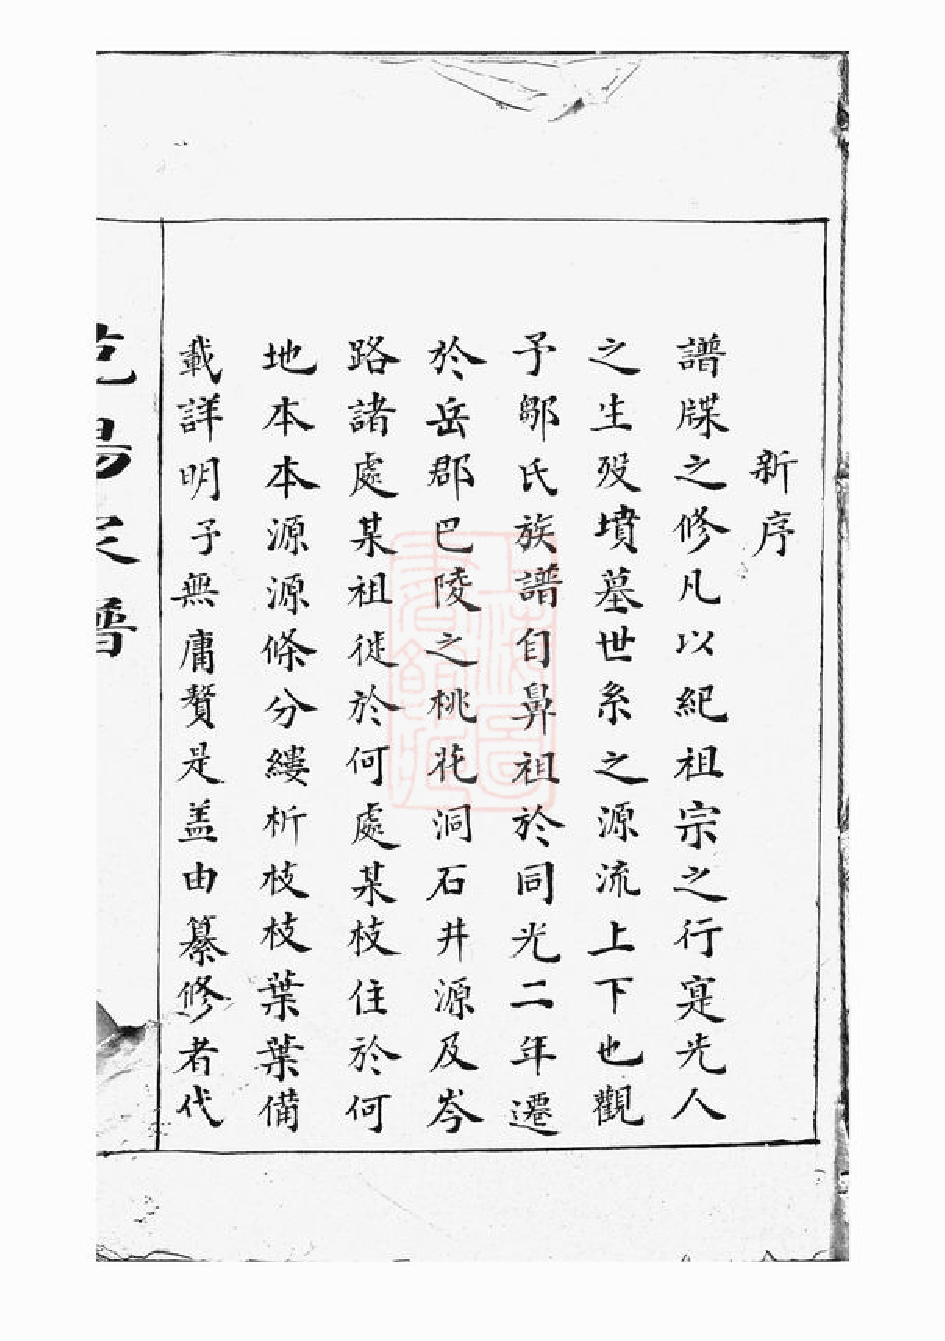 新序
譜牒之修凡以紀祖宗之行寔先人
之生歿墳墓世系之源流上下也觀
予鄒氏族譜自鼻祖於同光二年遷
於岳郡巴陵之桃花洞石井源及岑
路諸處某祖徙於何處某枝住於何
地本本源源條分縷析枝枝葉葉備
載詳明予無庸贅是盖由纂修者代